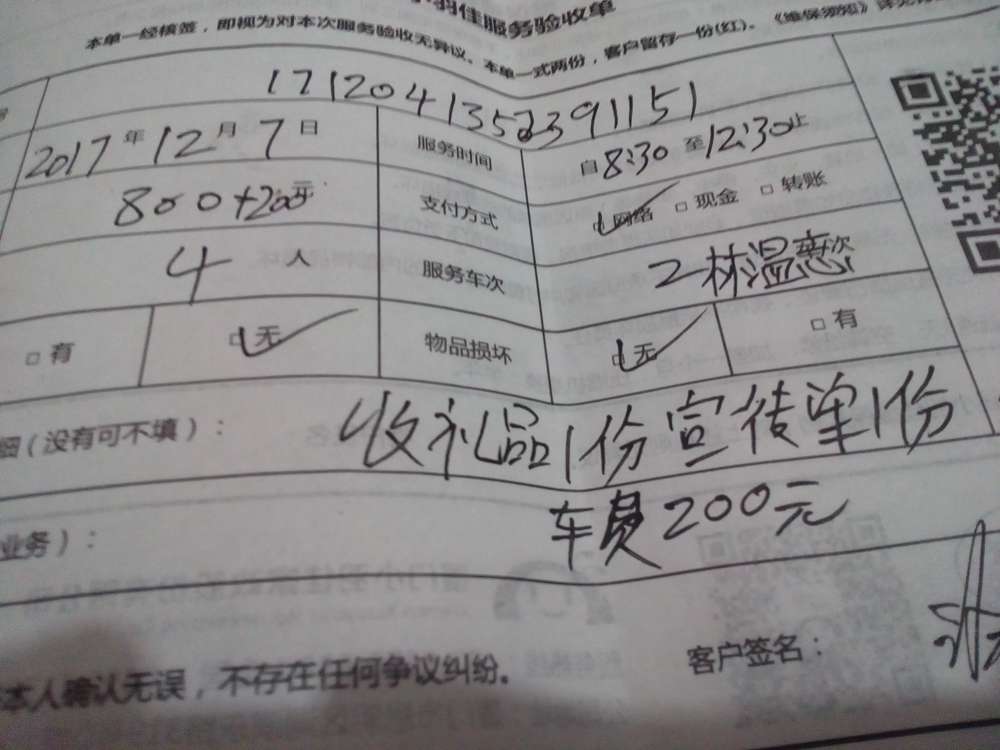 羽佳服务验收单
本单一经核签，即视为对本次服务验收无异议。本单一式两份，客户留存一份(红)。
17120413523391151
2017年12月7日 服务时间 自8:30至12:30止
800+200元 支付方式 网络 □现金 □转账
4人 服务车次 2 林温惷次
□有 □无 物品损坏 □无 □有
（没有可不填）： 收礼品1份宣传单1份
车员200元
业务）：
本人确认无误，不存在任何争议纠纷。 客户签名：